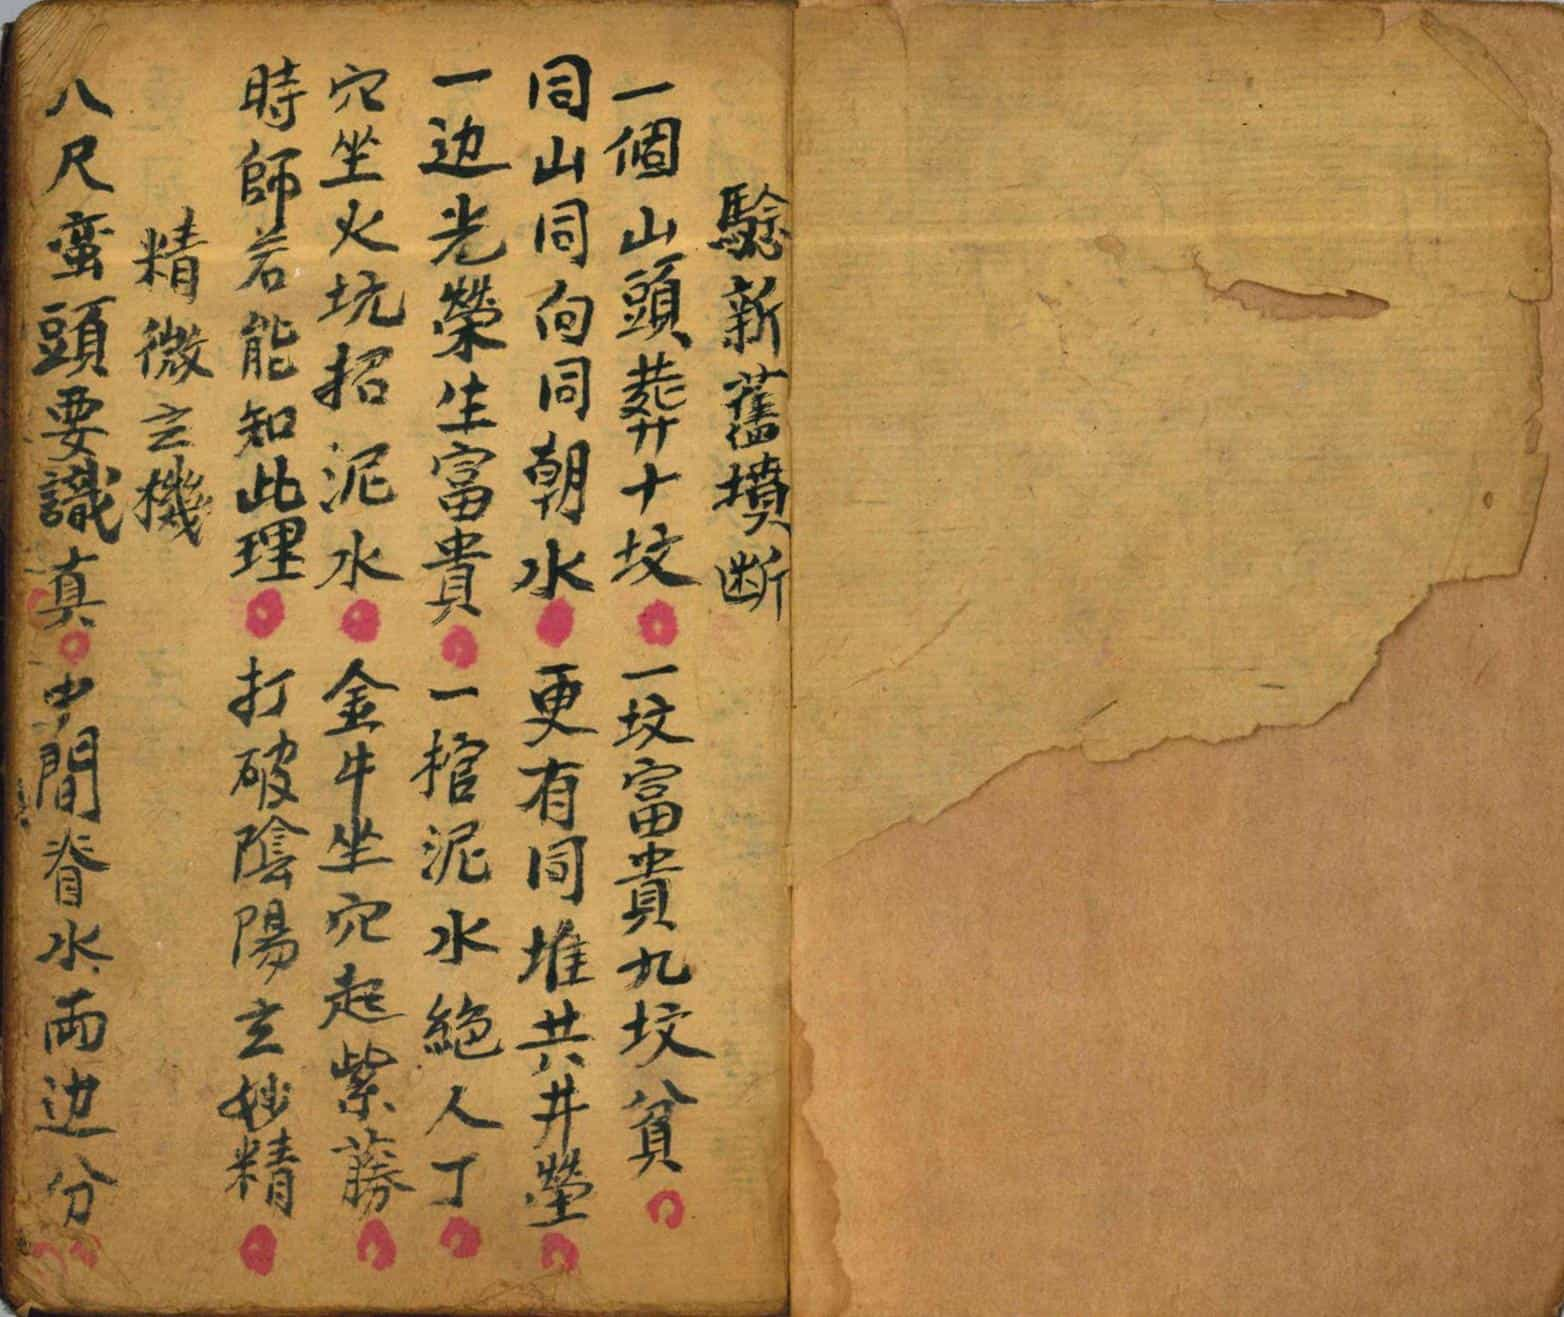 驗新舊墳断
一個山頭葬十坟一坟富貴九坟貧
同山同向同朝水更有同堆共井塋
一边光榮生富貴一棺泥水絶人丁
穴坐火坑招泥水金牛坐穴起紫藤
時師若能知此理打破陰陽玄妙精
精微玄機
八尺蛮頭要識真中間脊水両边分